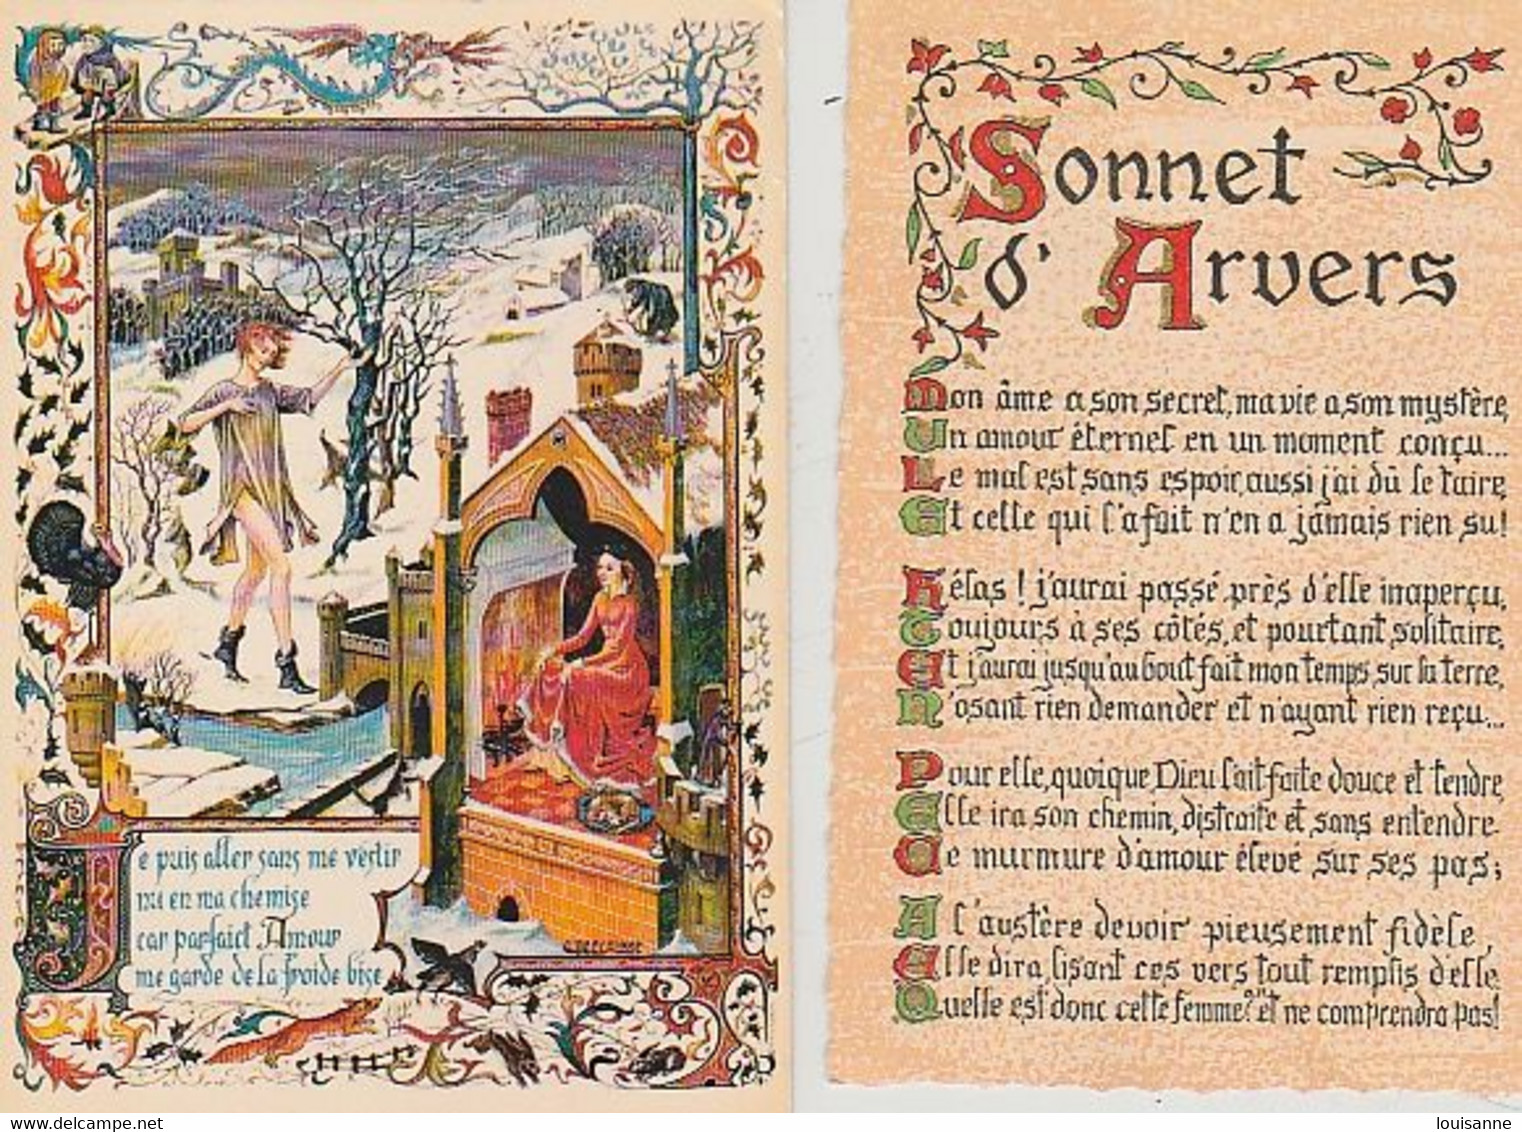 Je puis aller sans me vestir
ni en ma chemise
car parfaict Amour
me garde de la froide bize
Sonnet
d'Arvers
Mon âme a son secret, ma vie a son mystère,
Un amour éternel en un moment conçu...
Le mal est sans espoir, aussi j'ai dû le taire,
Et celle qui l'a fait n'en a jamais rien su!
Hélas! j'aurai passé près d'elle inaperçu,
Toujours à ses côtés, et pourtant solitaire,
Et j'aurai jusqu'au bout fait mon temps sur la terre,
N'osant rien demander et n'ayant rien reçu...
Pour elle, quoique Dieu l'ait faite douce et tendre
Elle ira son chemin, distraite et sans entendre
Ce murmure d'amour élevé sur ses pas;
A l'austère devoir pieusement fidèle,
Elle dira, lisant ces vers tout remplis d'elle
"Quelle est donc cette femme?" et ne comprendra pas!
delcampe.net
louisanne